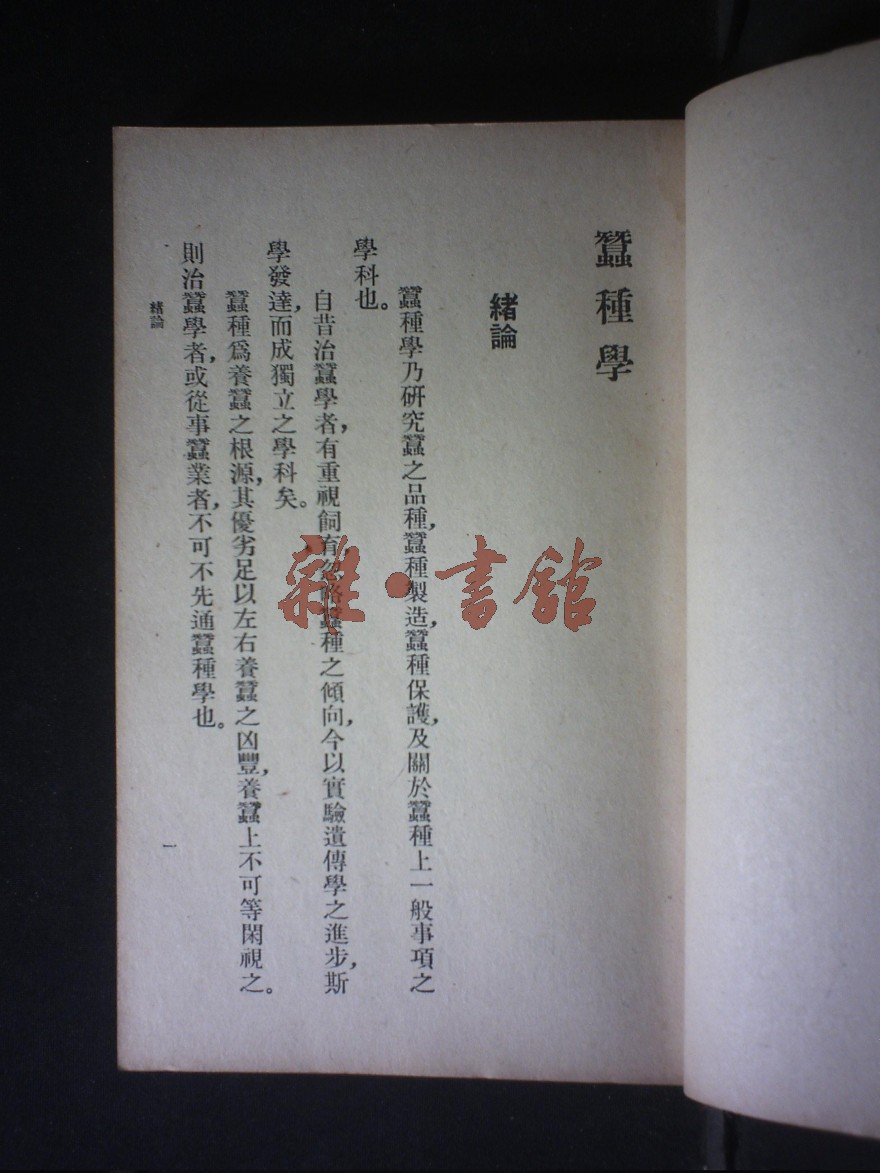 蠶種學
緒論
蠶種學乃研究蠶之品種,蠶種製造,蠶種保護,及關於蠶種上一般事項之
學科也。
自昔治蠶學者,有重視飼育忽略蠶種之傾向,今以實驗遺傳學之進步,斯
學發達,而成獨立之學科矣。
蠶種爲養蠶之根源,其優劣足以左右養蠶之凶豐,養蠶上不可等閑視之。
則治蠶學者,或從事蠶業者,不可不先通蠶種學也。
緒論
一
雜·書館